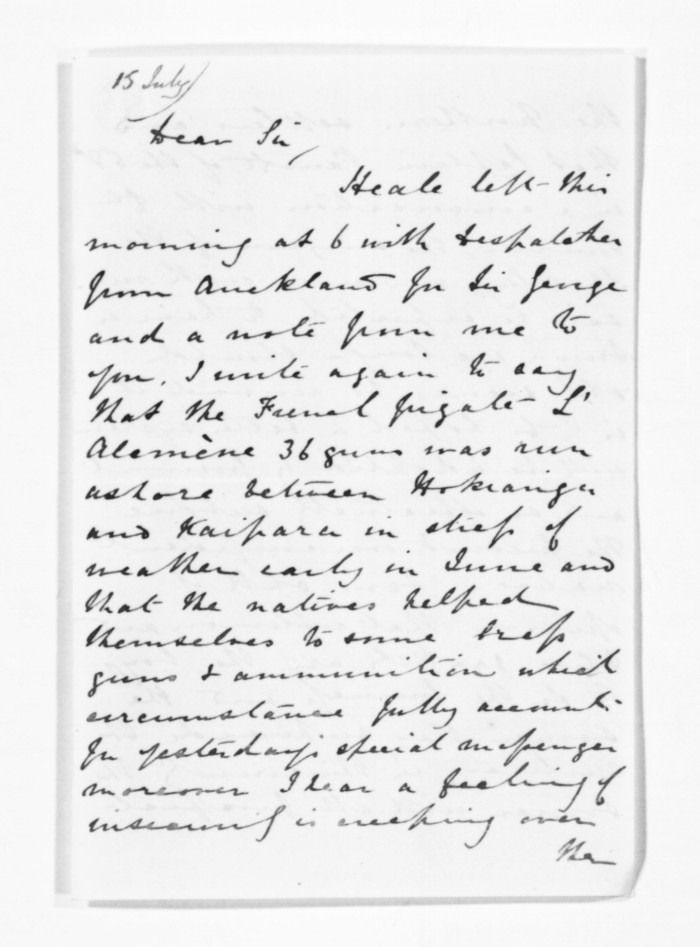 15 July
Dear Sir,
Heale left this
morning at 6 with despatches
from Auckland for Sir George
and a note from me to
you. I write again to say
that the French frigate L'
Alcmène 36 guns was run
ashore between Hokianga
and Kaipara in stress of
weather early in June and
that the natives helped
themselves to some brass
guns & ammunition which
circumstance fully accounts
for yesterday's special messenger
moreover I hear a feeling of
insecurity is creeping over
the